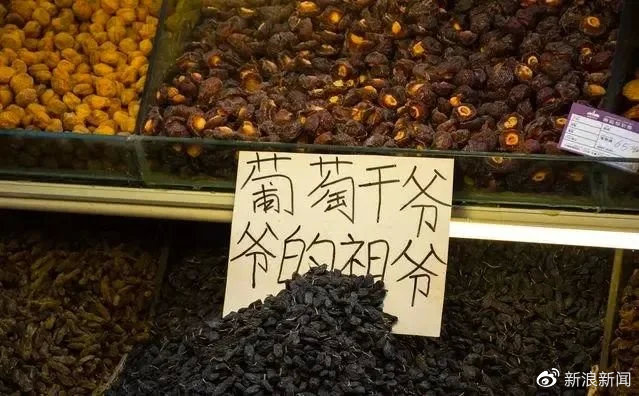 葡萄干爷
爷的祖爷
新浪新闻